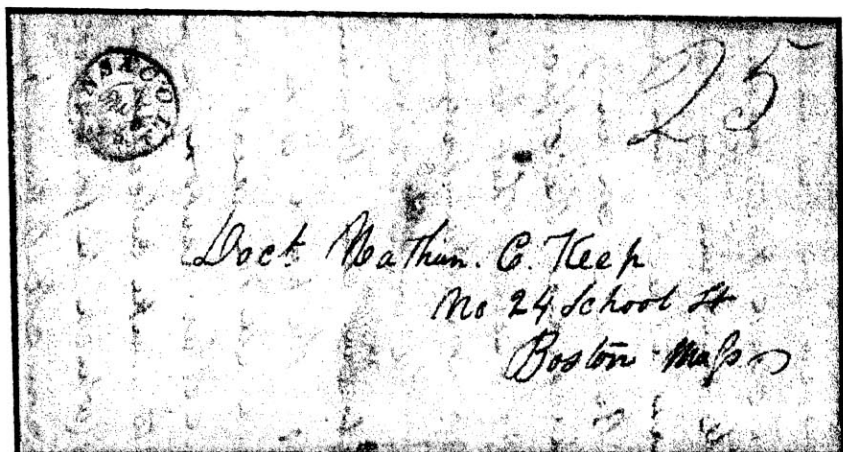 PENSACOLA
25
Doct. Nathan. C. Keep
No 24 School St
Boston Mass